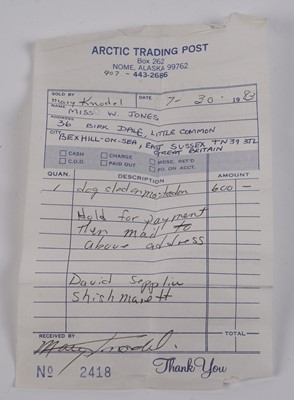 ARCTIC TRADING POST
Box 262
NOME, ALASKA 99762
907 - 443-2686
SOLD BY Mary Knodel DATE 7-30-1983
NAME MISS. W. JONES
ADDRESS 36 BIRK DALE, LITTLE COMMON
CITY BEXHILL-ON-SEA, EAST SUSSEX TN39 3TL
GREAT BRITAIN
CASH CHARGE MDSE. RET'D
C.O.D. PAID OUT PD. ON ACCT.
QUAN. DESCRIPTION AMOUNT
1 dog sled on mastodon 600 —
Hold for payment
then mail to
above address
David Sepplin
Shishmareff
TOTAL
RECEIVED BY Mary Knodel
No 2418 Thank You